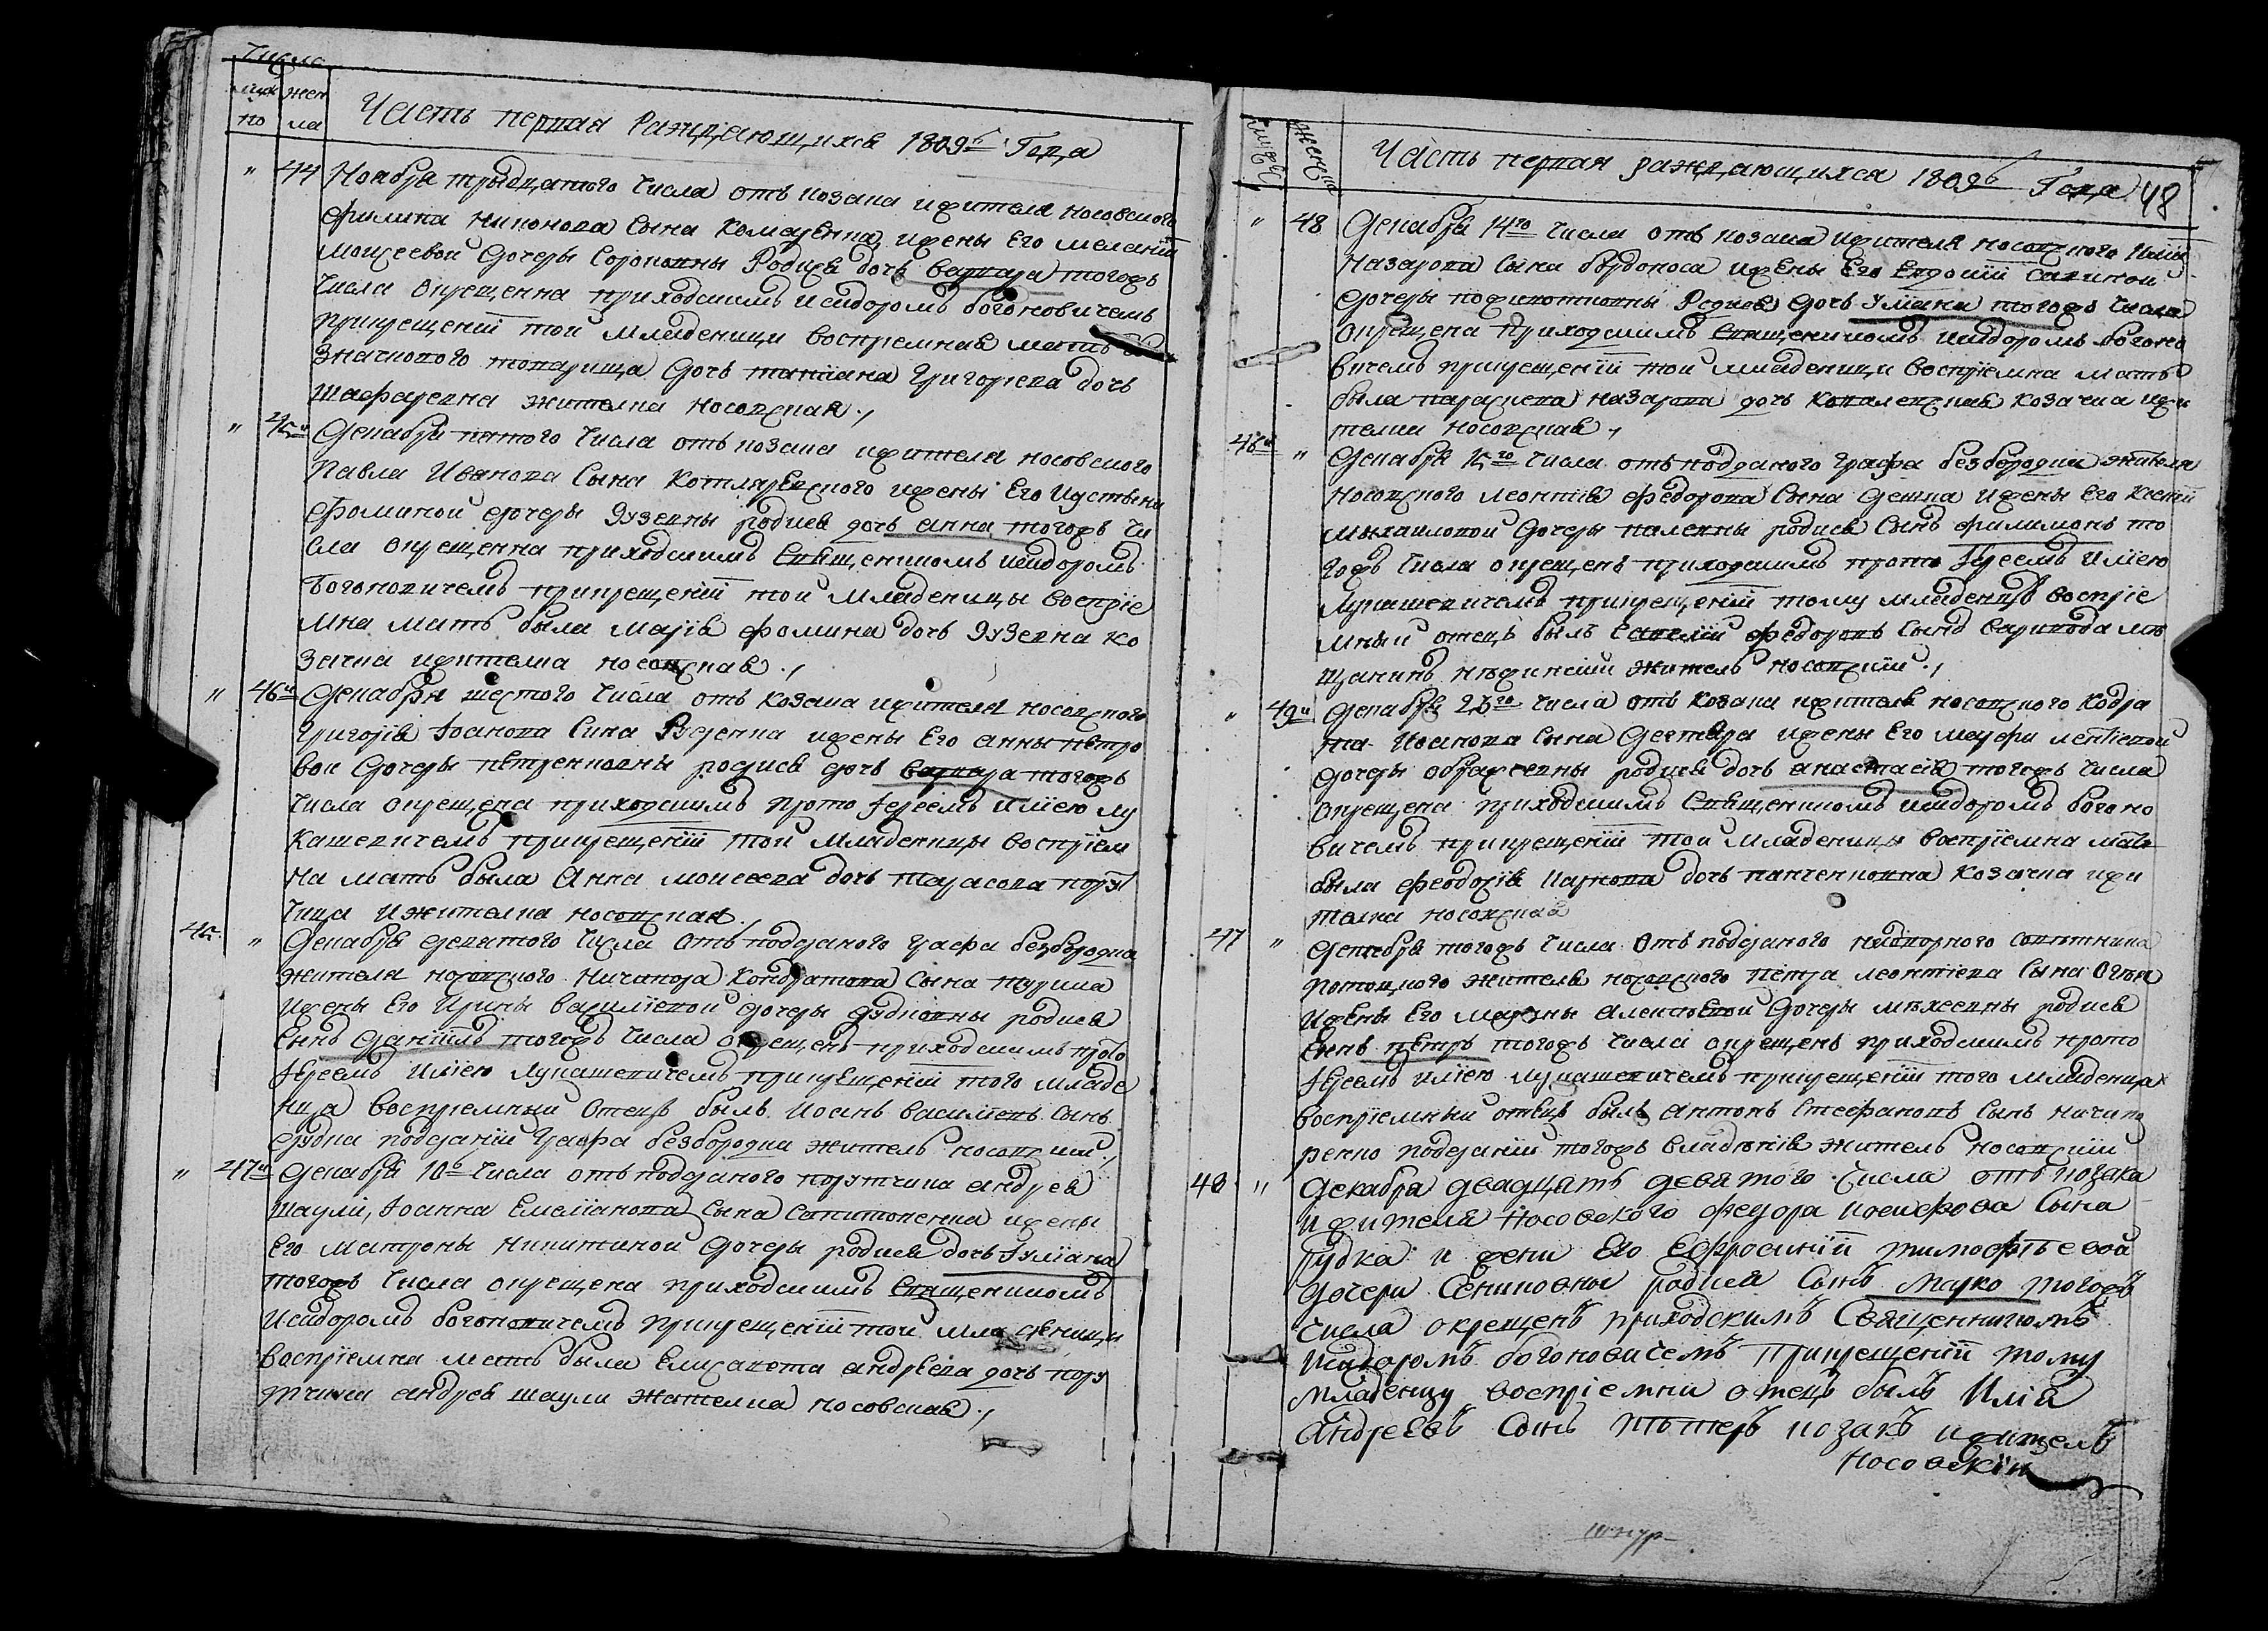 Числа
муж жен
по ла
Часть первая Раждающихся 1809 Года
" 44 Ноября тридцатого Числа отъ козака ижителя носовского
филипа никонова Сына Комаренка, ижены Его меланіи
моисеевой Дочеры Родися дочь варвара тогожъ
Числа окрещенна приходскимъ исидоромъ богоновичемъ
прикрещеніи той младеници воспріемная мать
значкового товарища Дочь татіана Григорева дочь
жителка носовская
" 45 Декабря пятого Числа отъ козака ижителя носовского
Павла Иванова Сына Котляревского ижены Его Иустины
Фоминой дочеры Зузевны родися дочь анна тогожъ чи
сла окрещенна приходскимъ Священникомъ исидоромъ
Богоновичемъ прикрещеніи той младеницы воспріе
мна мать была маріа фомина дочь Зузевна ко
зачка ижителка носовская
" 46 Декабря шестого Числа отъ козака ижителя носовского
Григорія Іоанова Сина ижены Его анны петро
вой Дочеры петренковны родися дочь варвара тогожъ
Числа окрещена приходскимъ прото Іереемъ иліею лу
кашевичемъ прикрещеніи той младеницы воспріем
на мать была Анна моисеева дочь тарасова пору
чица ижителка носовская
45 " Декабря девятого Числа Отъ подданого графа безбородка
жителя носовского Ничипора Кондратова Сына турика
ижены Его Ирины василіевой дочеры дудковны родися
Сынъ Даніилъ тогожъ Числа окрещенъ приходскимъ прото
Іереемъ иліею Лукашевичемъ прикрещеніи того младе
нца воспріемный Отецъ былъ Иоанъ василіевъ Сынъ
дудка подданій Графа безбородки житель носовскій
" 47 Декабря 10 Числа отъ подданого порутчика андрея
шаулы, Іоанна Емеліанова Сына ижены
Его матроны никитиной Дочеры родися дочь Іуліана
тогожъ Числа окрещена приходскимъ Священникомъ
Исидоромъ богоновичемъ прикрещеніи той младеници
воспріемна мать была Елисавета андреева дочь пору
тчика андрея шаули жителка носовская

Часть первая раждающихся 1809 Года 48
" 48 Декабря 14го Числа отъ козака ижителя носовского
Назарова Сына ижены Его Евдокіи савиной
дочеры Родися Дочь Іуліана тогожъ Числа
Окрещена приходскимъ Священникомъ исидоромъ богоно
вичемъ прикрещеніи той младеници воспріемна мать
была параскева назарова дочь ковалевская козачка ижи
телка носовская
46 " Декабря 15го Числа отъ подданого Графа безбородки жителя
носовского леонтія федорова Сына ижены Его ксеніи
михаиловой Дочеры родися Сынъ филимонъ то
гожъ Числа окрещенъ приходскимъ прото Іереемъ иліею
Лукашевичемъ прикрещеніи тому младенцу воспріе
мный отецъ былъ федоровъ Сынъ мѣ
щанинъ нѣжинскій житель носовскій
" 49 Декабря 23го Числа отъ козака ижителя носовского Кодра
та Иоанова Сына Дегтяра ижены Его
дочеры родися дочь анастасія тогожъ Числа
окрещена приходскимъ Священникомъ исидоромъ богоно
вичемъ прикрещеніи той младеници воспріемна мать
была феодосія дочь панченковна козачка ижи
телка носовская
47 " Декабря тогожъ Числа Отъ подданого надворного Совѣтника
жителя носовского петра леонтіева Сына
ижены Его марины алексѣевой Дочеры родися
Сынъ петръ тогожъ Числа окрещенъ приходскимъ прото
Іереемъ иліею лукашевичемъ прикрещеніи того младенца
воспріемный отецъ былъ антонъ Стефановъ Сынъ ничипо
ренко подданій тогожъ владѣнія житель носовскій
48 " Декабра двадцать девятого числа отъ козака
ижителя Носовского федора иосифова Сына
Гудка и жени его Ефросиніи тимофѣевой
дочери родися Сынъ марко тогожъ
числа окрещенъ приходскимъ Священникомъ
исидоромъ богоновичемъ прикрещеніи тому
младенцу воспріемни отецъ былъ Илія
андреевъ Сынъ козакъ ижитель
Носовскій
шнур